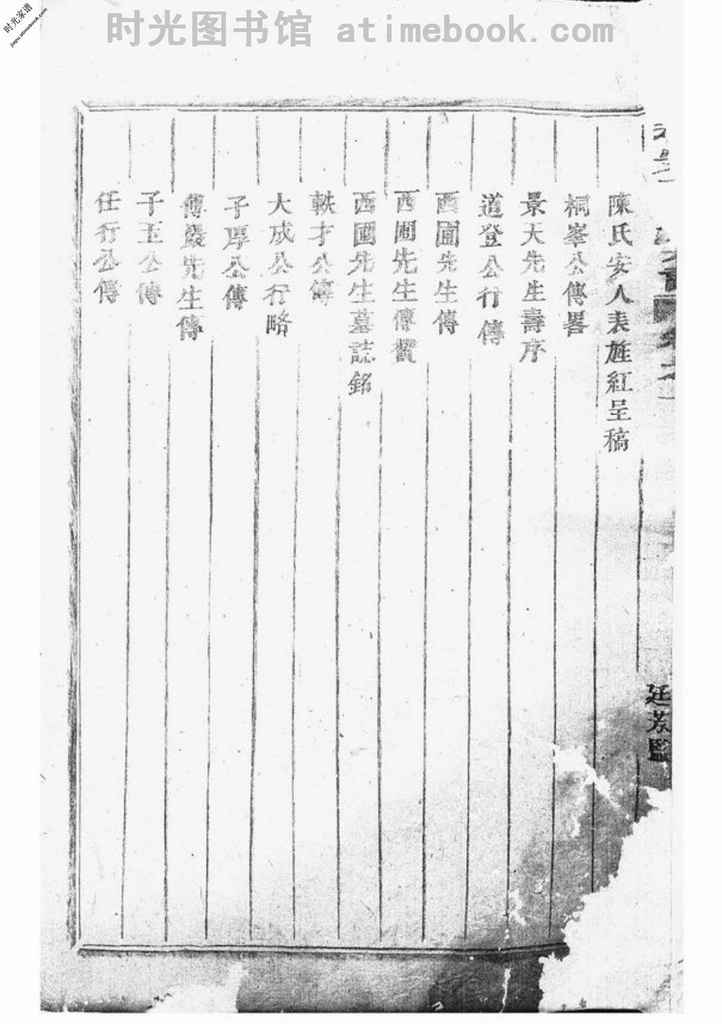 时光图书馆 atimebook.com
时光家谱
jiapu.atimebook.com
陳氏安人表旌紅呈稿
桐峯公傳畧
景天先生壽序
道登公行傳
酉圃先生傳
西圃先生傳贊
西園先生墓誌銘
軼才公傳
大成公行略
子厚公傳
傅巖先生傳
子玉公傳
任行公傳
廷芳監